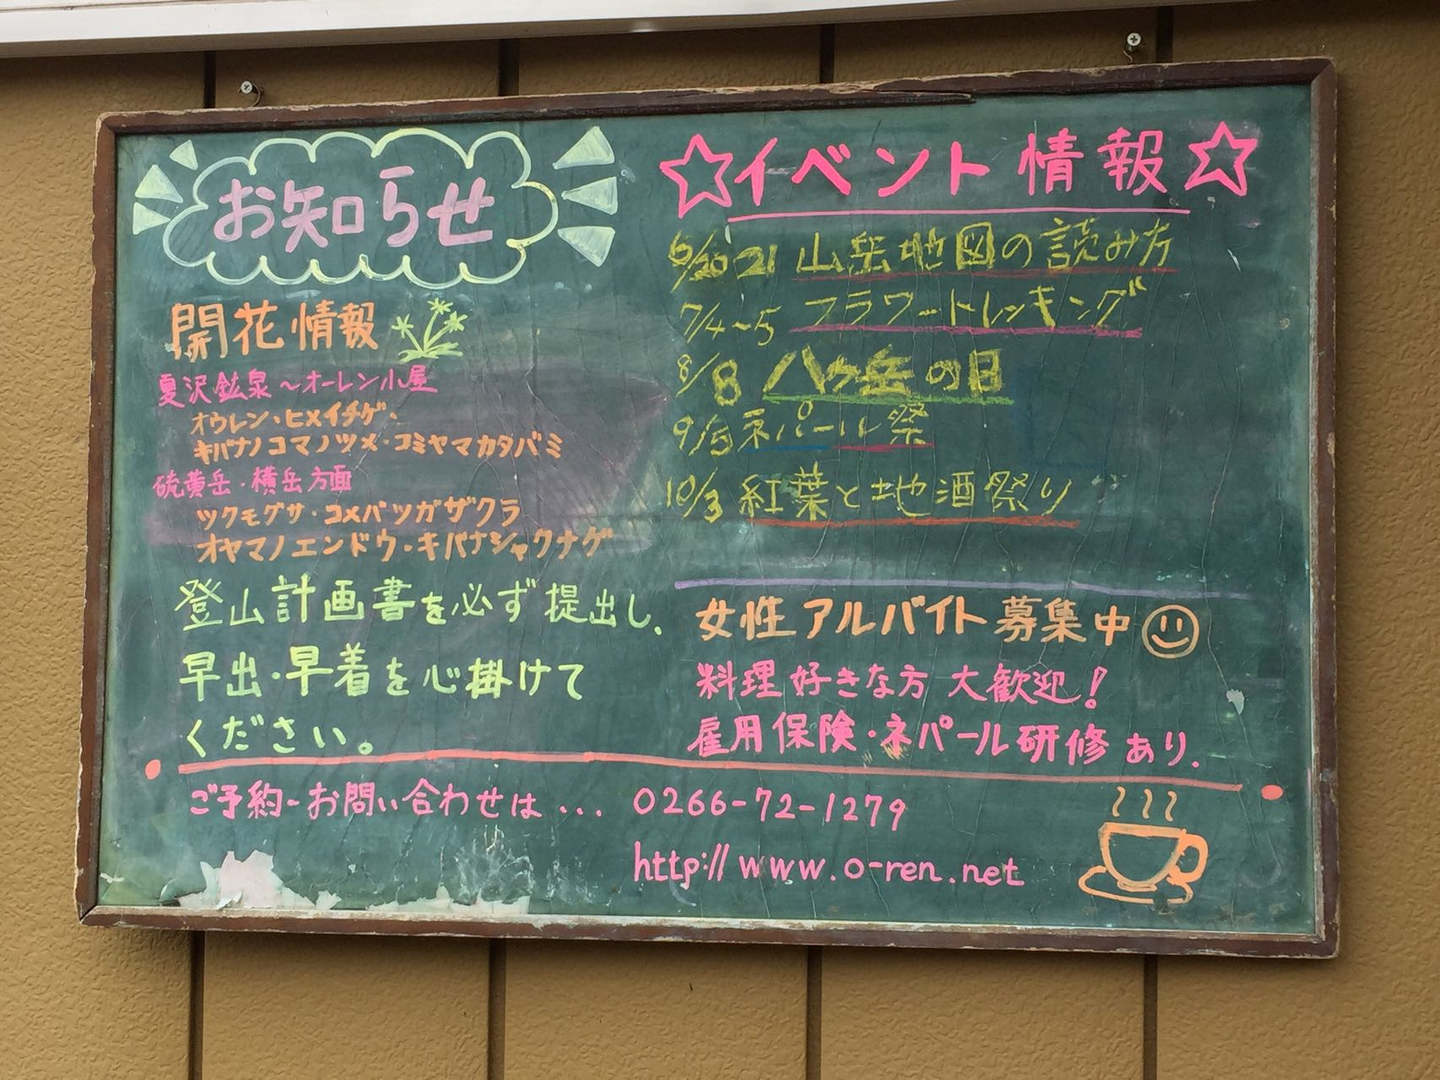 お知らせ
開花情報
夏沢鉱泉〜オーレン小屋
オウレン・ヒメイチゲ・
キバナノコマノツメ・コミヤマカタバミ
硫黄岳・横岳方面
ツクモグサ・コメバツガザクラ
オヤマノエンドウ・キバナシャクナゲ
登山計画書を必ず提出し、
早出・早着を心掛けて
ください。
☆イベント情報☆
6/20 21 山岳地図の読み方
7/4~5 フラワートレッキング
8/8 八ヶ岳の日
9/5 ネパール祭
10/3 紅葉と地酒祭り
女性アルバイト募集中
料理好きな方 大歓迎!
雇用保険・ネパール研修あり.
ご予約~お問い合わせは... 0266-72-1279
http://www.o-ren.net